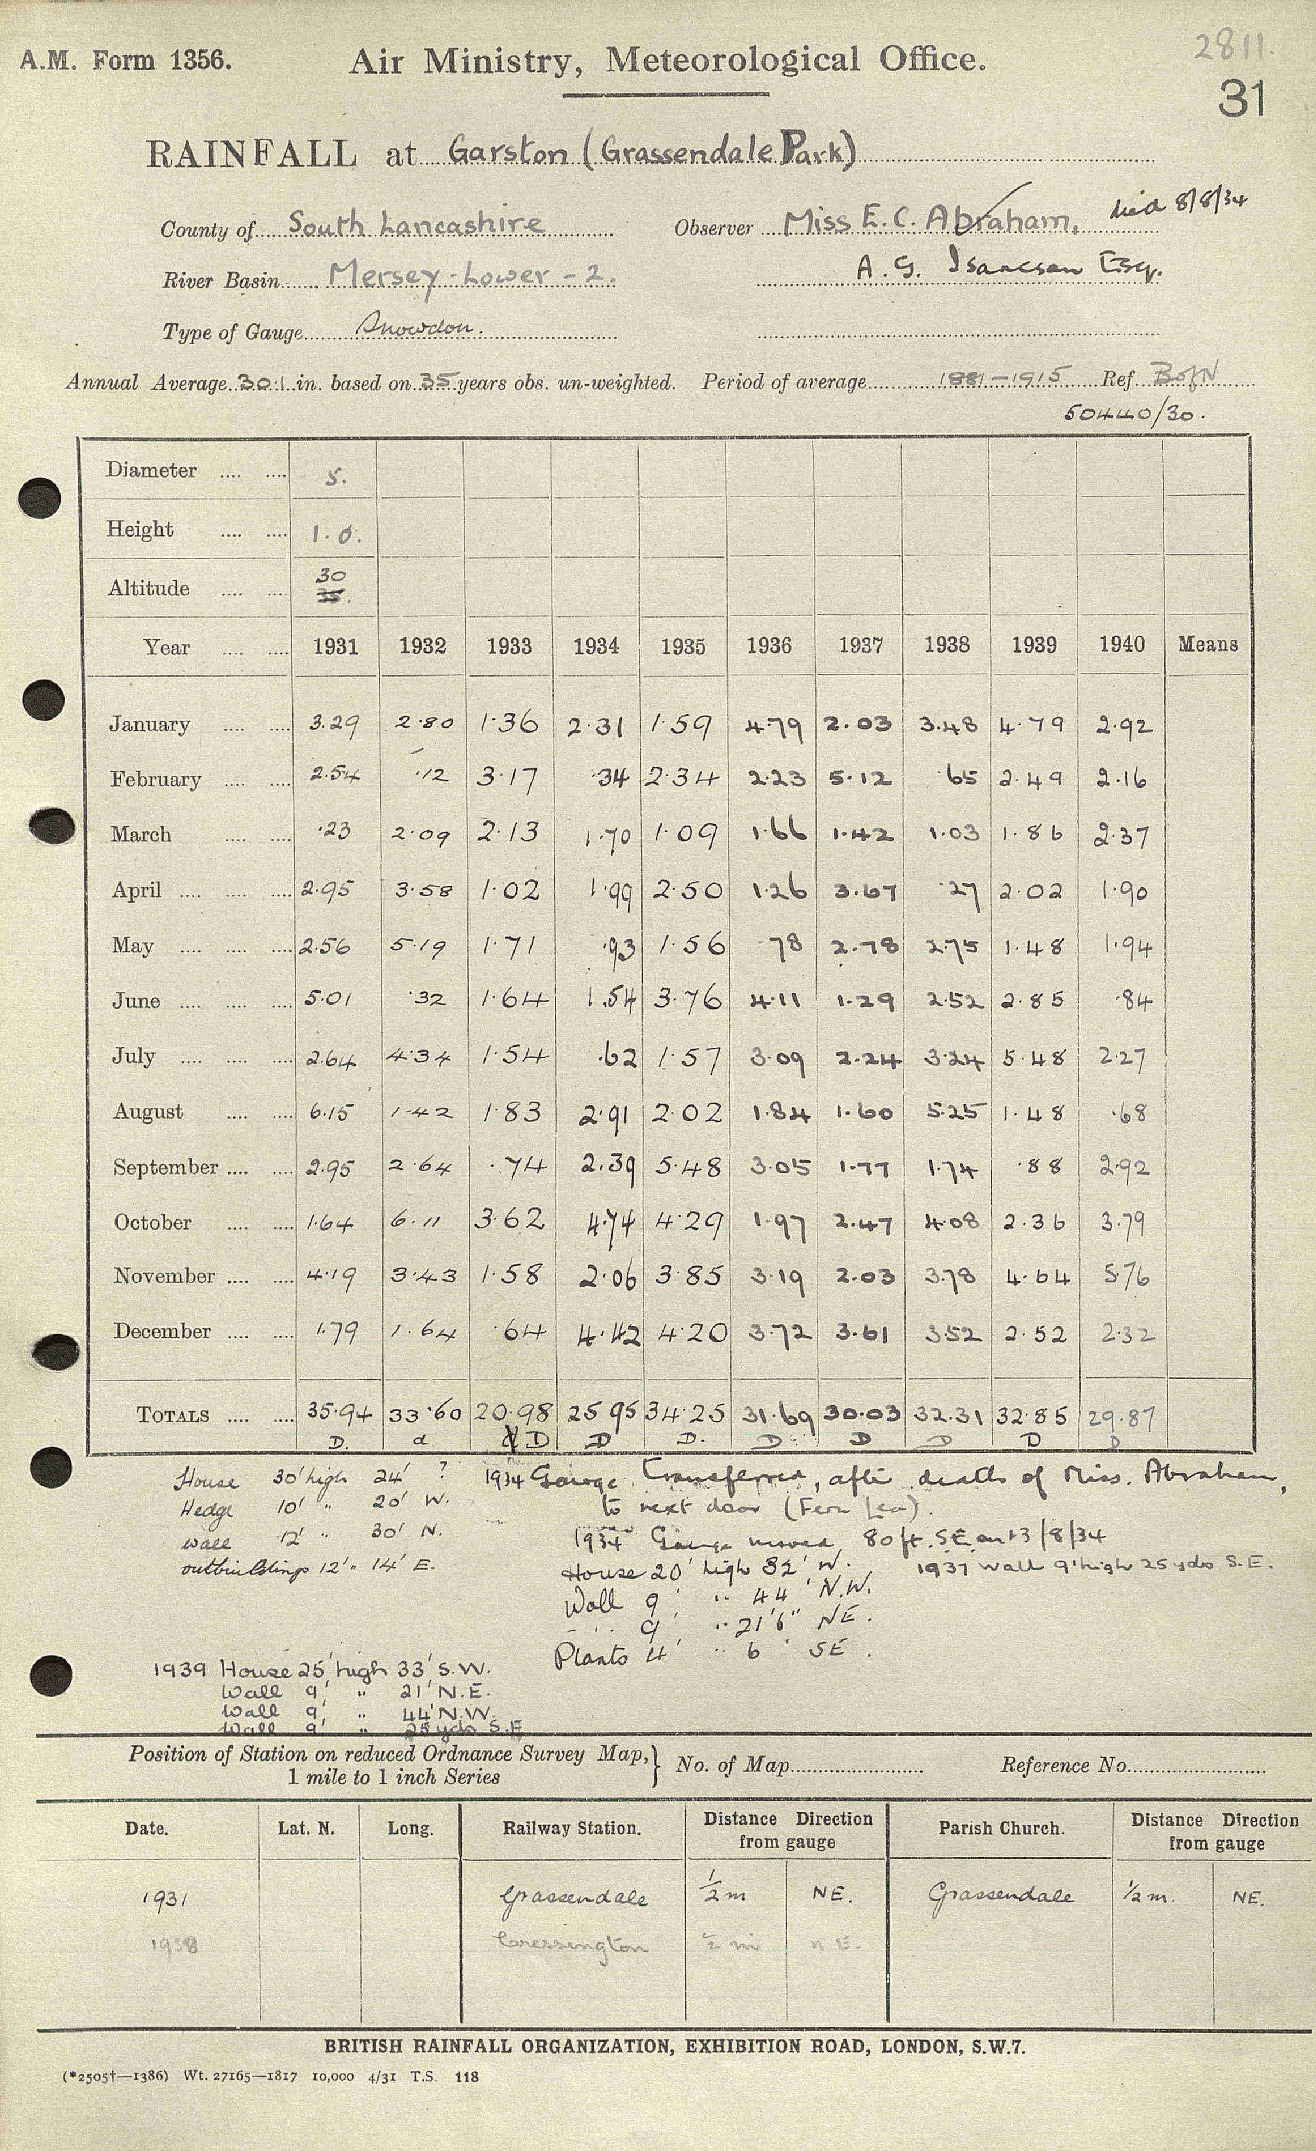 2811.
A.M. Form 1356. Air Ministry, Meteorological Office.
31
RAINFALL at Garston (Grassendale Park)
County of South Lancashire Observer Miss E. C. Abraham, died 8/8/34
River Basin Mersey-Lower-2. A. G. Isaacson Esq.
Type of Gauge Snowdon.
Annual Average 30.1 in. based on 35 years obs. un-weighted. Period of average 1881-1915 Ref. B of N
50440/30.
Diameter 5.
Height 1.0.
Altitude 30
35.
Year 1931 1932 1933 1934 1935 1936 1937 1938 1939 1940 Means
January 3.29 2.80 1.36 2.31 1.59 4.79 2.03 3.48 4.79 2.92
February 2.54 .12 3.17 .34 2.34 2.23 5.12 .65 2.49 2.16
March .23 2.09 2.13 1.70 1.09 1.66 1.42 1.03 1.86 2.37
April 2.95 3.58 1.02 1.99 2.50 1.26 3.67 .27 2.02 1.90
May 2.56 5.19 1.71 .93 1.56 .78 2.78 2.75 1.48 1.94
June 5.01 .32 1.64 1.54 3.76 4.11 1.29 2.52 2.85 .84
July 2.64 4.34 1.54 .62 1.57 3.09 2.24 3.24 5.48 2.27
August 6.15 1.42 1.83 2.91 2.02 1.84 1.60 5.25 1.48 .68
September 2.95 2.64 .74 2.39 5.48 3.05 1.77 1.74 .88 2.92
October 1.64 6.11 3.62 4.74 4.29 1.97 2.47 4.08 2.36 3.79
November 4.19 3.43 1.58 2.06 3.85 3.19 2.03 3.78 4.64 5.76
December 1.79 1.64 .64 4.42 4.20 3.72 3.61 3.52 2.52 2.32
TOTALS 35.94 33.60 20.98 25.95 34.25 31.69 30.03 32.31 32.85 29.87
D. d D D D. D. D D D D
House 30' high 24' ? 1934 Gauge transferred, after death of Miss. Abraham,
Hedge 10' " 20' W. to next door (Fern Lea).
Wall 12' " 30' N. 1934 Gauge moved 80 ft. SE on 13/8/34
outbuildings 12' " 14' E. House 20' high 32' W. 1937 Wall 9' high 25 yds S.E.
Wall 9' " 44' N.W.
" 9' " 21'6" NE.
Plants 4' " 6' SE.
1939 House 25' high 33' S.W.
Wall 9' " 21' N.E.
Wall 9' " 44' N.W.
Wall 9' " 25 yds S.E
Position of Station on reduced Ordnance Survey Map, } No. of Map Reference No.
1 mile to 1 inch Series
Date. Lat. N. Long. Railway Station. Distance Direction from gauge Parish Church. Distance Direction from gauge
1931 Grassendale ½ m NE. Grassendale ½ m. NE.
1938 Cressington ½ mi n E.
BRITISH RAINFALL ORGANIZATION, EXHIBITION ROAD, LONDON, S.W.7.
(*2505†—1386) Wt. 27165—1817 10,000 4/31 T.S. 118